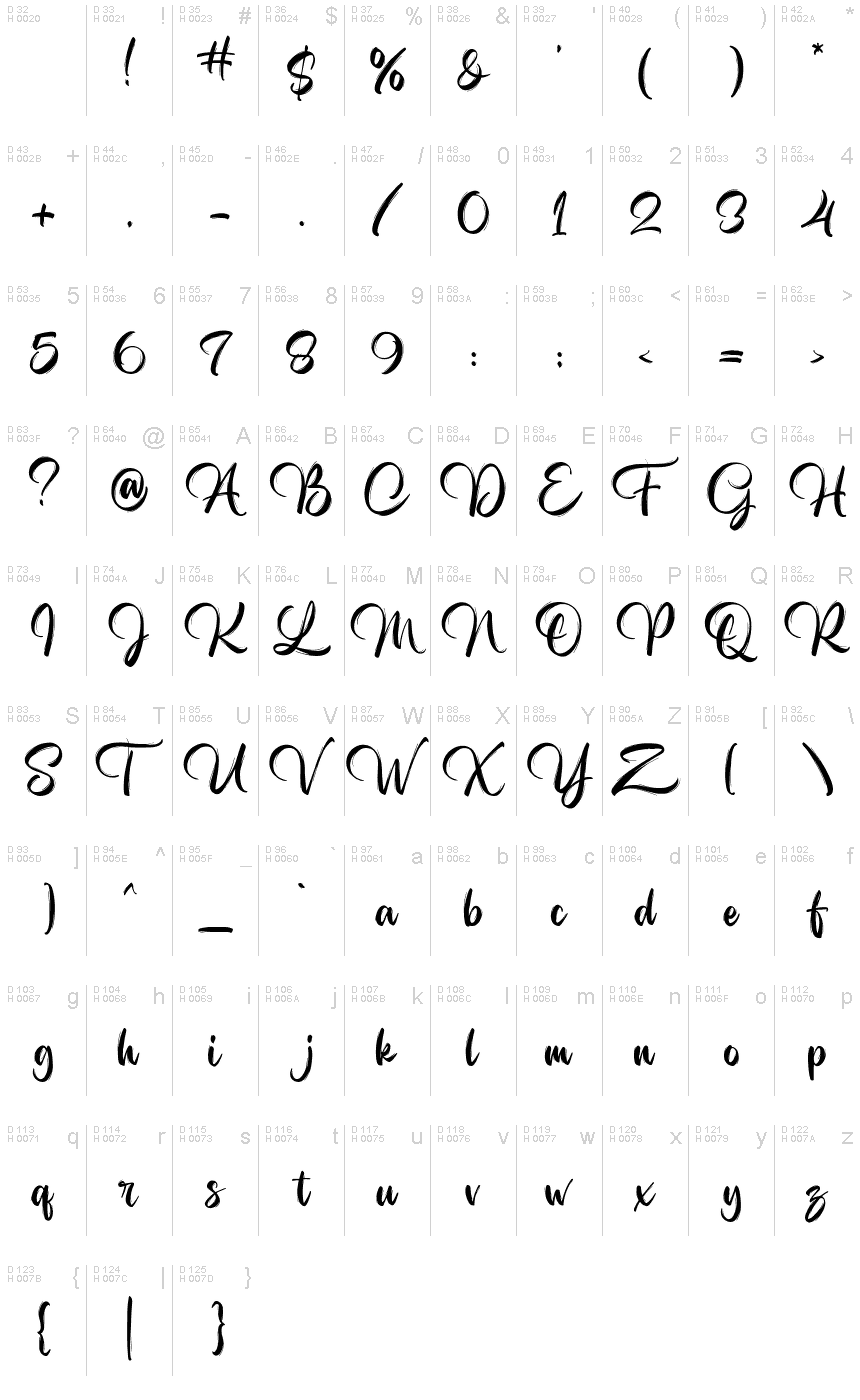 D 32 D 33 ! D 35 # D 36 $ D 37 % D 38 & D 39 ' D 40 ( D 41 ) D 42 *
H 0020 H 0021 H 0023 H 0024 H 0025 H 0026 H 0027 H 0028 H 0029 H 002A
! # $ % & ' ( ) *
D 43 + D 44 , D 45 - D 46 . D 47 / D 48 0 D 49 1 D 50 2 D 51 3 D 52 4
H 002B H 002C H 002D H 002E H 002F H 0030 H 0031 H 0032 H 0033 H 0034
+ , - . / 0 1 2 3 4
D 53 5 D 54 6 D 55 7 D 56 8 D 57 9 D 58 : D 59 ; D 60 < D 61 = D 62 >
H 0035 H 0036 H 0037 H 0038 H 0039 H 003A H 003B H 003C H 003D H 003E
5 6 7 8 9 : ; < = >
D 63 ? D 64 @ D 65 A D 66 B D 67 C D 68 D D 69 E D 70 F D 71 G D 72 H
H 003F H 0040 H 0041 H 0042 H 0043 H 0044 H 0045 H 0046 H 0047 H 0048
? @ A B C D E F G H
D 73 I D 74 J D 75 K D 76 L D 77 M D 78 N D 79 O D 80 P D 81 Q D 82 R
H 0049 H 004A H 004B H 004C H 004D H 004E H 004F H 0050 H 0051 H 0052
I J K L M N O P Q R
D 83 S D 84 T D 85 U D 86 V D 87 W D 88 X D 89 Y D 90 Z D 91 [ D 92 \
H 0053 H 0054 H 0055 H 0056 H 0057 H 0058 H 0059 H 005A H 005B H 005C
S T U V W X Y Z [ \
D 93 ] D 94 ^ D 95 _ D 96 ` D 97 a D 98 b D 99 c D 100 d D 101 e D 102 f
H 005D H 005E H 005F H 0060 H 0061 H 0062 H 0063 H 0064 H 0065 H 0066
] ^ _ ` a b c d e f
D 103 g D 104 h D 105 i D 106 j D 107 k D 108 l D 109 m D 110 n D 111 o D 112 p
H 0067 H 0068 H 0069 H 006A H 006B H 006C H 006D H 006E H 006F H 0070
g h i j k l m n o p
D 113 q D 114 r D 115 s D 116 t D 117 u D 118 v D 119 w D 120 x D 121 y D 122 z
H 0071 H 0072 H 0073 H 0074 H 0075 H 0076 H 0077 H 0078 H 0079 H 007A
q r s t u v w x y z
D 123 { D 124 | D 125 }
H 007B H 007C H 007D
{ | }